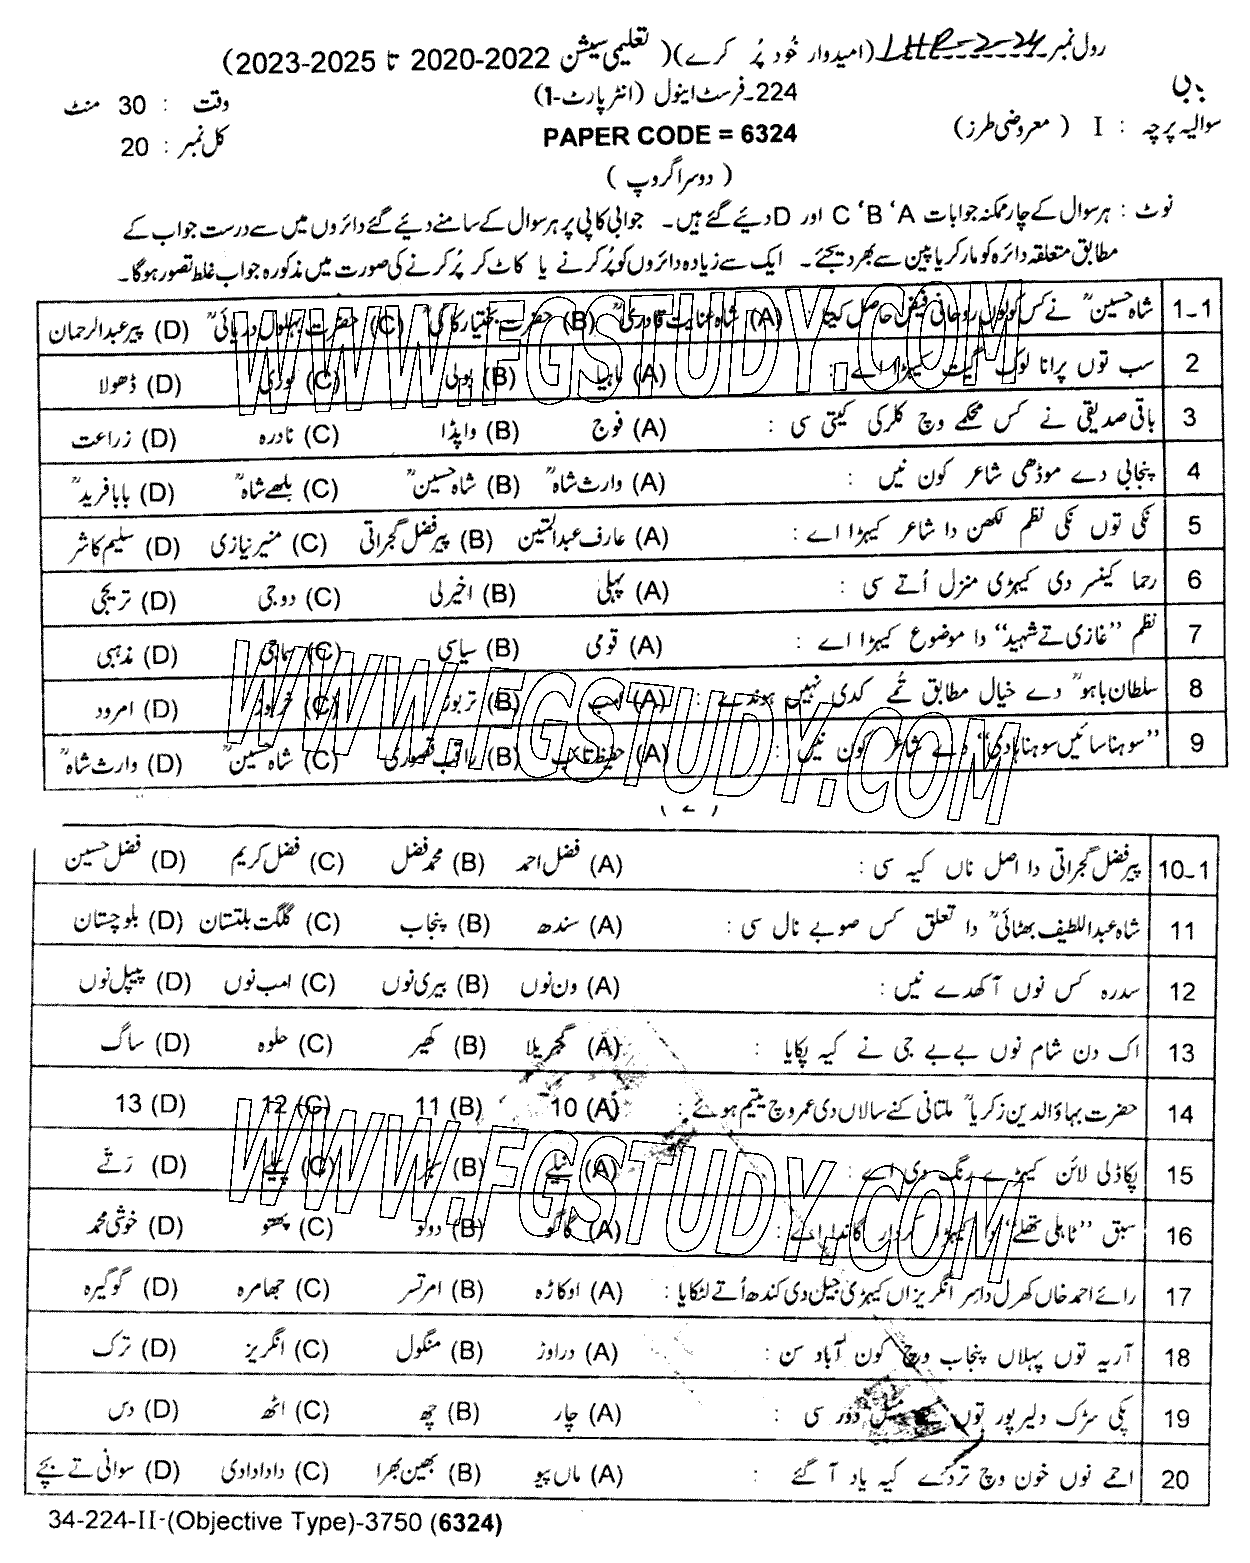 رول نمبر LHR-2-24 (امیدوار خُود پُر کرے) ( تعلیمی سیشن 2022-2020 تا 2025-2023 )
224۔فرسٹ اینول (انٹر پارٹ-1) وقت : 30 منٹ
سوالیہ پرچہ : I ( معروضی طرز ) PAPER CODE = 6324 کل نمبر : 20
( دوسرا گروپ )
نوٹ : ہر سوال کے چار ممکنہ جوابات A ‘ B ‘ C اور D دیئے گئے ہیں۔ جوابی کاپی پر ہر سوال کے سامنے دیئے گئے دائروں میں سے درست جواب کے
مطابق متعلقہ دائرہ کو مارکر یا پین سے بھر دیجئے۔ ایک سے زیادہ دائروں کو پُر کرنے یا کاٹ کر پُر کرنے کی صورت میں مذکورہ جواب غلط تصور ہوگا۔
1-1 شاہ حسینؒ نے کس کولوں روحانی فیض حاصل کیتا (A) شاہ عنایت قادریؒ (B) حضرت بختیار کاکیؒ (C) حضرت بہلول دریائیؒ (D) پیر عبدالرحمان
2 سب توں پرانا لوک گیت کیہڑا اے : (A) ماہیا (B) بولی (C) لوری (D) ڈھولا
3 باقی صدیقی نے کس محکمے وچ کلرکی کیتی سی : (A) فوج (B) واپڈا (C) نادرہ (D) زراعت
4 پنجابی دے موڈھی شاعر کون نیں : (A) وارث شاہؒ (B) شاہ حسینؒ (C) بلھے شاہؒ (D) بابا فریدؒ
5 نکی توں نکی نظم لکھن دا شاعر کیہڑا اے : (A) عارف عبدالمتین (B) پیر فضل گجراتی (C) منیر نیازی (D) سلیم کاشر
6 رحما کینسر دی کیہڑی منزل اُتے سی : (A) پہلی (B) اخیرلی (C) دوجی (D) تریجی
7 نظم ”غازی تے شہید“ دا موضوع کیہڑا اے : (A) قومی (B) سیاسی (C) سماجی (D) مذہبی
8 سلطان باہوؒ دے خیال مطابق تُمے کدی نہیں ہوندے : (A) امب (B) تربوز (C) خربوز (D) امرود
9 ”سوہنا سائیں سوہنا ہادی“ دے شاعر کون نیں : (A) حفیظ تائب (B) راقب قصوری (C) شاہ حسینؒ (D) وارث شاہؒ
10-1 پیر فضل گجراتی دا اصل ناں کیہ سی : (A) فضل احمد (B) محمد فضل (C) فضل کریم (D) فضل حسین
11 شاہ عبداللطیف بھٹائیؒ دا تعلق کس صوبے نال سی : (A) سندھ (B) پنجاب (C) گلگت بلتستان (D) بلوچستان
12 سدرہ کس نوں آکھدے نیں : (A) ون نوں (B) بیری نوں (C) امب نوں (D) پیپل نوں
13 اک دن شام نوں بے بے جی نے کیہ پکایا : (A) گجریلا (B) کھیر (C) حلوہ (D) ساگ
14 حضرت بہاؤالدین زکریاؒ ملتانی کنے سالاں دی عمر وچ یتیم ہوئے : (A) 10 (B) 11 (C) 12 (D) 13
15 پکاڈلی لائن کیہڑے رنگ دی اے : (A) نیلے (B) (C) پیلے (D) رَتّے
16 سبق ”ٹاہلی تھلے“ دا کیہڑا کردار گاندا اے : (A) گاگو (B) دولو (C) پھتو (D) خوشی محمد
17 رائے احمد خاں کھرل دا سر انگریزاں کیہڑی جیل دی کندھ اُتے لٹکایا : (A) اوکاڑہ (B) امرتسر (C) جھامرہ (D) گوگیرہ
18 آریہ توں پہلاں پنجاب وچ کون آباد سن : (A) دراوڑ (B) منگول (C) انگریز (D) ترک
19 پکی سڑک دلیر پور توں میل دور سی : (A) چار (B) چھ (C) اٹھ (D) دس
20 احمے نوں خون وچ تردے کیہ یاد آ گئے : (A) ماں پیو (B) بھین بھرا (C) دادا دادی (D) سوانی تے بچے
34-224-II-(Objective Type)-3750 (6324)
WWW.FGSTUDY.COM
WWW.FGSTUDY.COM
WWW.FGSTUDY.COM